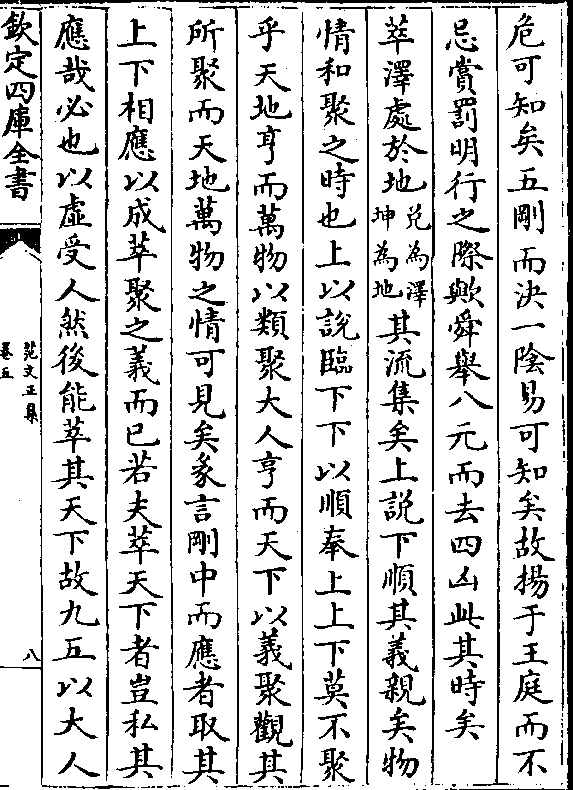 危可知矣五剛而決一陰易可知矣故揚于王庭而不
忌賞罰明行之際歟舜舉八元而去四凶此其時矣
萃澤處於地兌為澤坤為地其流集矣上說下順其義親矣物
情和聚之時也上以說臨下下以順奉上上下莫不聚
乎天地亨而萬物以類聚大人亨而天下以義聚觀其
所聚而天地萬物之情可見矣彖言剛中而應者取其
上下相應以成萃聚之義而已若夫萃天下者豈私其
應哉必也以虛受人然後能萃其天下故九五以大人
欽定四庫全書
范文正集
卷五
八